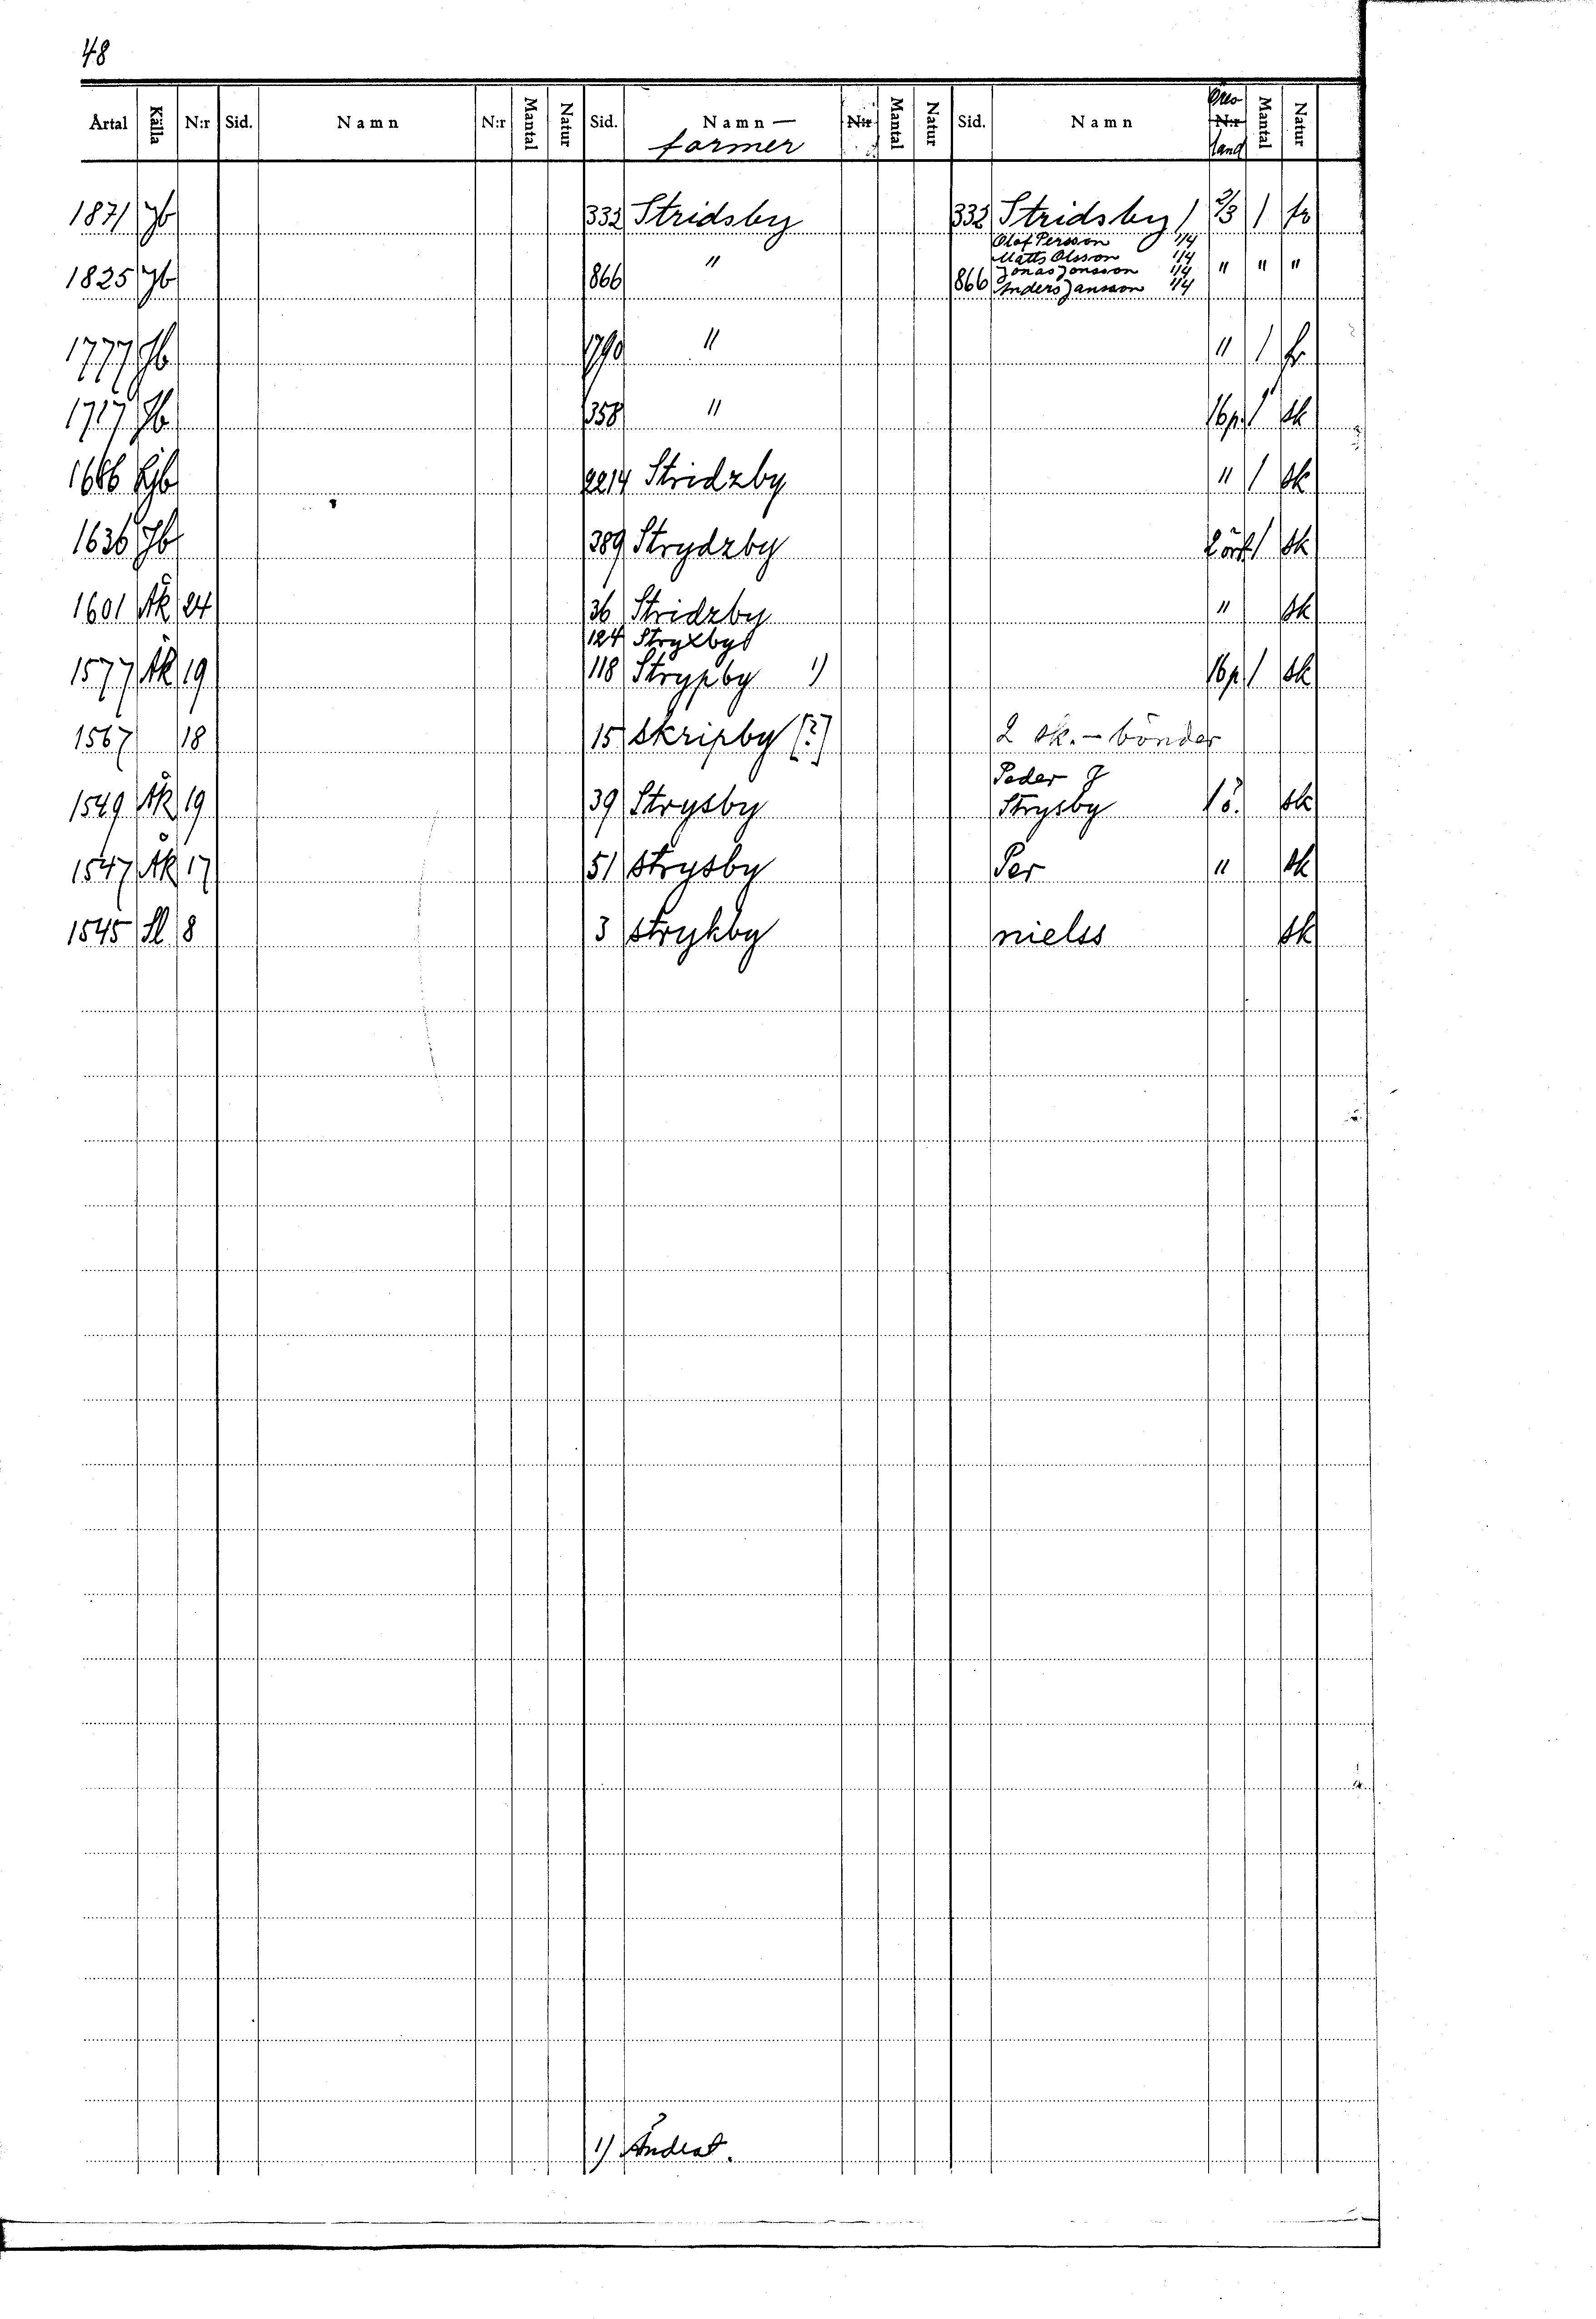 48
Årtal Källa N:r Sid. Namn N:r Mantal Natur Sid. Namn— N:r Mantal Natur Sid. Namn Öres- N:r Mantal Natur
former land
1871 Jb 332 Stridsby 332 Stridsby 1 2/3 1 fr
Olof Persson 1/4
Matts Olsson 1/4
1825 Jb 866 " 866 Jonas Jonsson 1/4 " " "
Anders Jansson 1/4
1777 Jb 1790 " " 1 fr
1717 Jb 358 " 16p. 1 sk
1686 Ljb 2214 Stridzby " 1 sk
1636 Jb 389 Strydzby 2 ört 1 sk
1601 ÅK 24 36 Stridzby " sk
124 Stryxby
1577 ÅR 19 118 Strypby 1) 16p 1 sk
1567 18 15 skripby [?] 2 sk.-bönder
Peder J
1549 ÅK 19 39 Strysby Strysby 1ö. sk
1547 ÅK 17 51 strysby Per " sk
1545 Sl 8 3 strykby nielss sk
1) Ändrat.